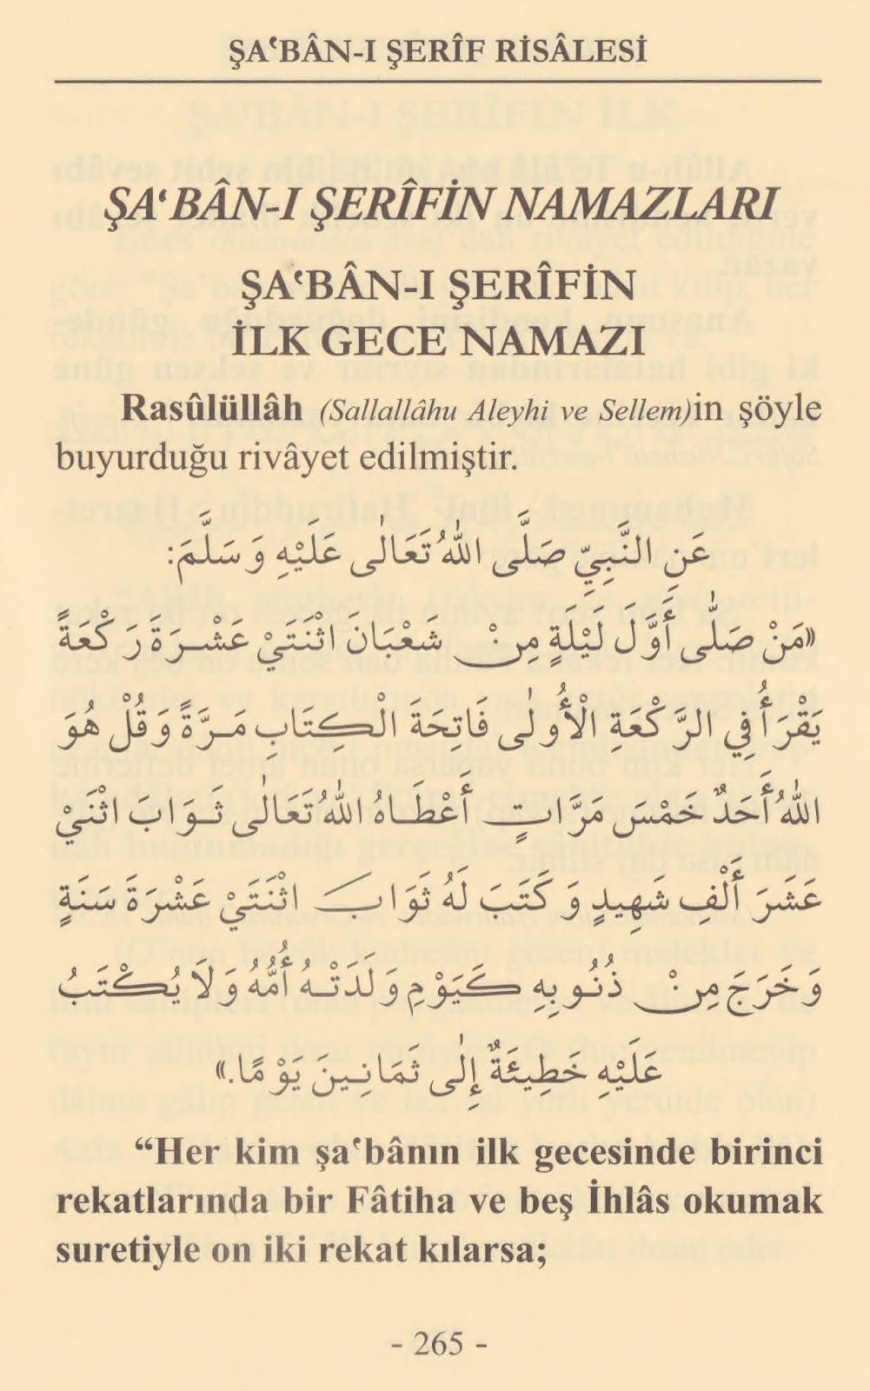 ŞAʿBÂN-I ŞERÎF RİSÂLESİ
ŞAʿBÂN-I ŞERÎFİN NAMAZLARI
ŞAʿBÂN-I ŞERÎFİN
İLK GECE NAMAZI
Rasûlüllâh (Sallallâhu Aleyhi ve Sellem)in şöyle
buyurduğu rivâyet edilmiştir.
عَنِ النَّبِيِّ صَلَّى اللهُ تَعَالٰى عَلَيْهِ وَسَلَّمَ:
«مَنْ صَلّٰى أَوَّلَ لَيْلَةٍ مِنْ شَعْبَانَ اثْنَتَيْ عَشْرَةَ رَكْعَةً
يَقْرَأُ فِي الرَّكْعَةِ الْأُولٰى فَاتِحَةَ الْكِتَابِ مَرَّةً وَقُلْ هُوَ
اللهُ أَحَدٌ خَمْسَ مَرَّاتٍ أَعْطَاهُ اللهُ تَعَالٰى ثَوَابَ اثْنَيْ
عَشَرَ أَلْفِ شَهِيدٍ وَكَتَبَ لَهُ ثَوَابَ اثْنَتَيْ عَشْرَةَ سَنَةٍ
وَخَرَجَ مِنْ ذُنُوبِهِ كَيَوْمِ وَلَدَتْهُ أُمُّهُ وَلَا يُكْتَبُ
عَلَيْهِ خَطِيئَةٌ إِلٰى ثَمَانِينَ يَوْمًا.»
“Her kim şaʿbânın ilk gecesinde birinci
rekatlarında bir Fâtiha ve beş İhlâs okumak
suretiyle on iki rekat kılarsa;
- 265 -